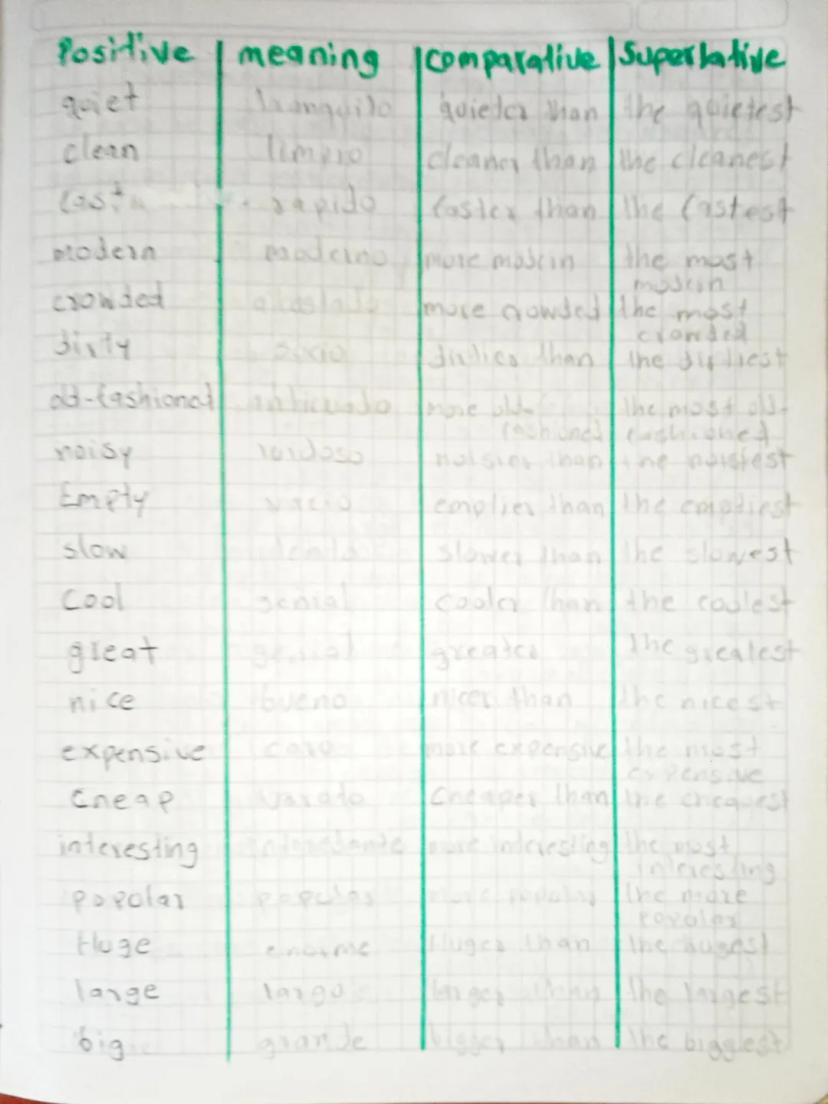 Positive meaning comparative Superlative
quiet tranquilo quieter than the quietest
clean limpio cleaner than the cleanest
fast rapido faster than the fastest
modern moderno more modern the most
modern
crowded more crowded the most
crowded
dirty sucio dirtier than the dirtiest
old-fashional anticuado more old- the most old-
fashioned fashioned
noisy ruidoso noisier than the noisiest
Empty vacio emptier than the emptiest
slow lento slower than the slowest
Cool genial cooler than the coolest
great genial greater the greatest
nice bueno nicer than the nicest
expensive caro more expensive the most
expensive
Cheap varato Cheaper than the cheapest
interesting more interesting the most
interesting
popolar popular more the more
popolar
Huge enorme Huger than the hugest
large largo larger than the largest
big grande bigger than the biggest